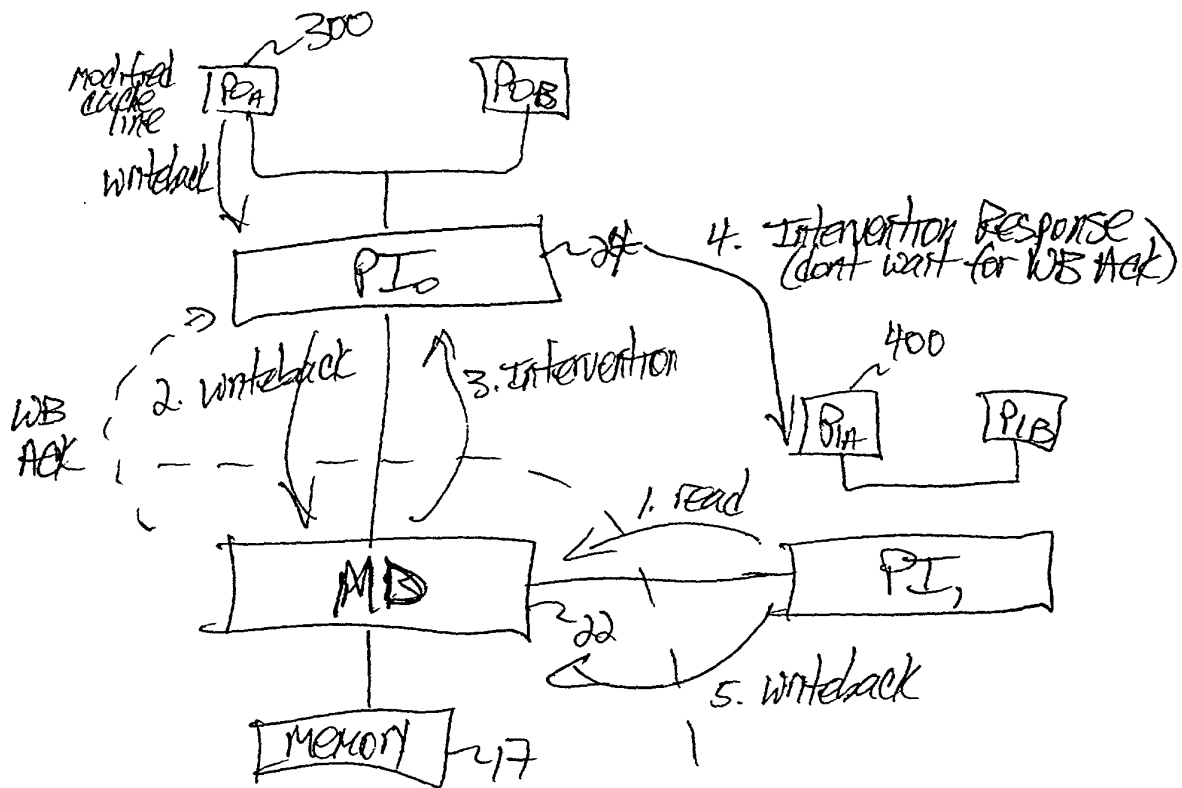 300
modified
cache
line
P0A
P0B
writeback
PI0
24
4. Intervention Response
(dont wait for WB Ack)
400
2. writeback
3. Intervention
WB
ACK
P1A
P1B
1. read
MD
PI1
22
5. writeback
Memory
17